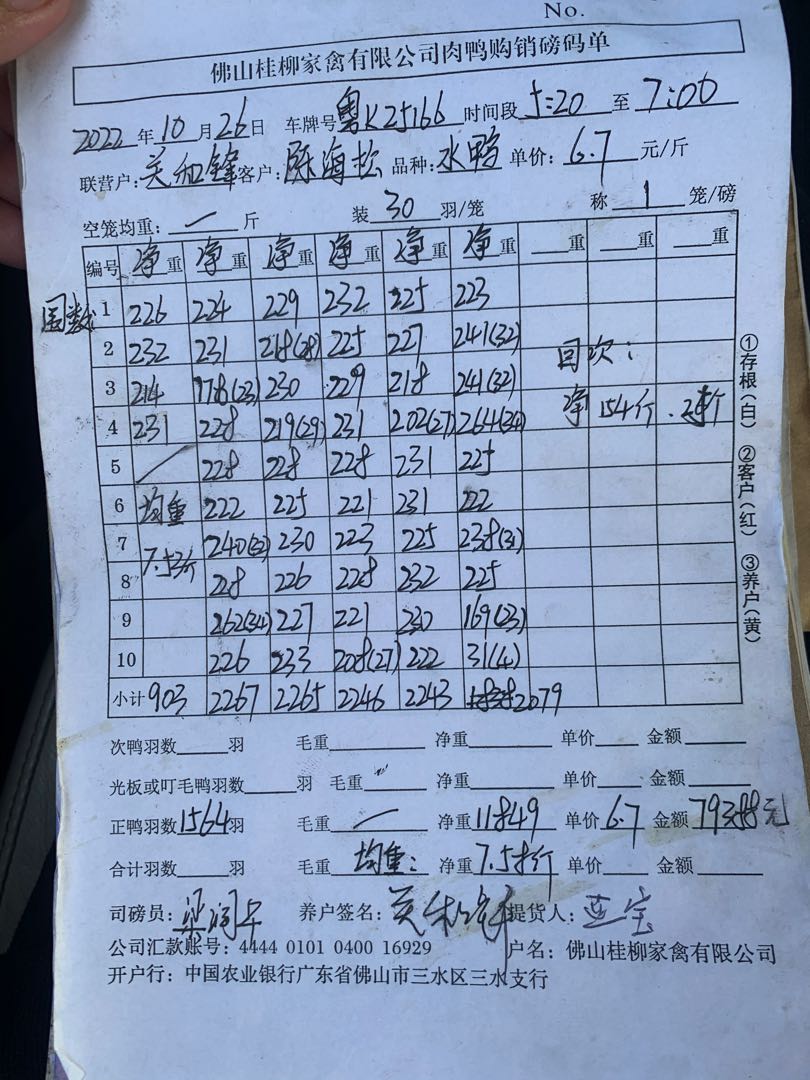 No.
佛山桂柳家禽有限公司肉鸭购销磅码单
2022年10月26日 车牌号粤K25166 时间段5:20至7:00
联营户:关和锋 客户:陈海松 品种:水鸭 单价:6.7元/斤
空笼均重:一斤 装30羽/笼 称1笼/磅
编号 净重 净重 净重 净重 净重 净重 重 重 重
1 226 224 229 232 225 223
2 232 231 218(28) 225 227 241(32) 回次:
3 214 178(23) 230 229 218 241(32)
4 231 228 219(29) 231 202(27) 264(34) 净 154斤
5 228 228 228 231 225
6 均重 222 225 221 231 222
7 7.53斤 240(32) 230 223 225 238(31)
8 228 226 228 232 225
9 262(34) 227 221 230 169(23)
10 226 233 208(27) 222 31(4)
小计 903 2267 2265 2246 2243 2079
①存根(白) ②客户(红) ③养户(黄)
次鸭羽数 羽 毛重 净重 单价 金额
光板或叮毛鸭羽数 羽 毛重 净重 单价 金额
正鸭羽数1564羽 毛重一 净重11849 单价6.7 金额 元
合计羽数 羽 毛重 均重: 净重7.58斤 单价 金额
司磅员: 养户签名:关和锋 提货人:亚宝
公司汇款账号:4444 0101 0400 16929 户名:佛山桂柳家禽有限公司
开户行:中国农业银行广东省佛山市三水区三水支行